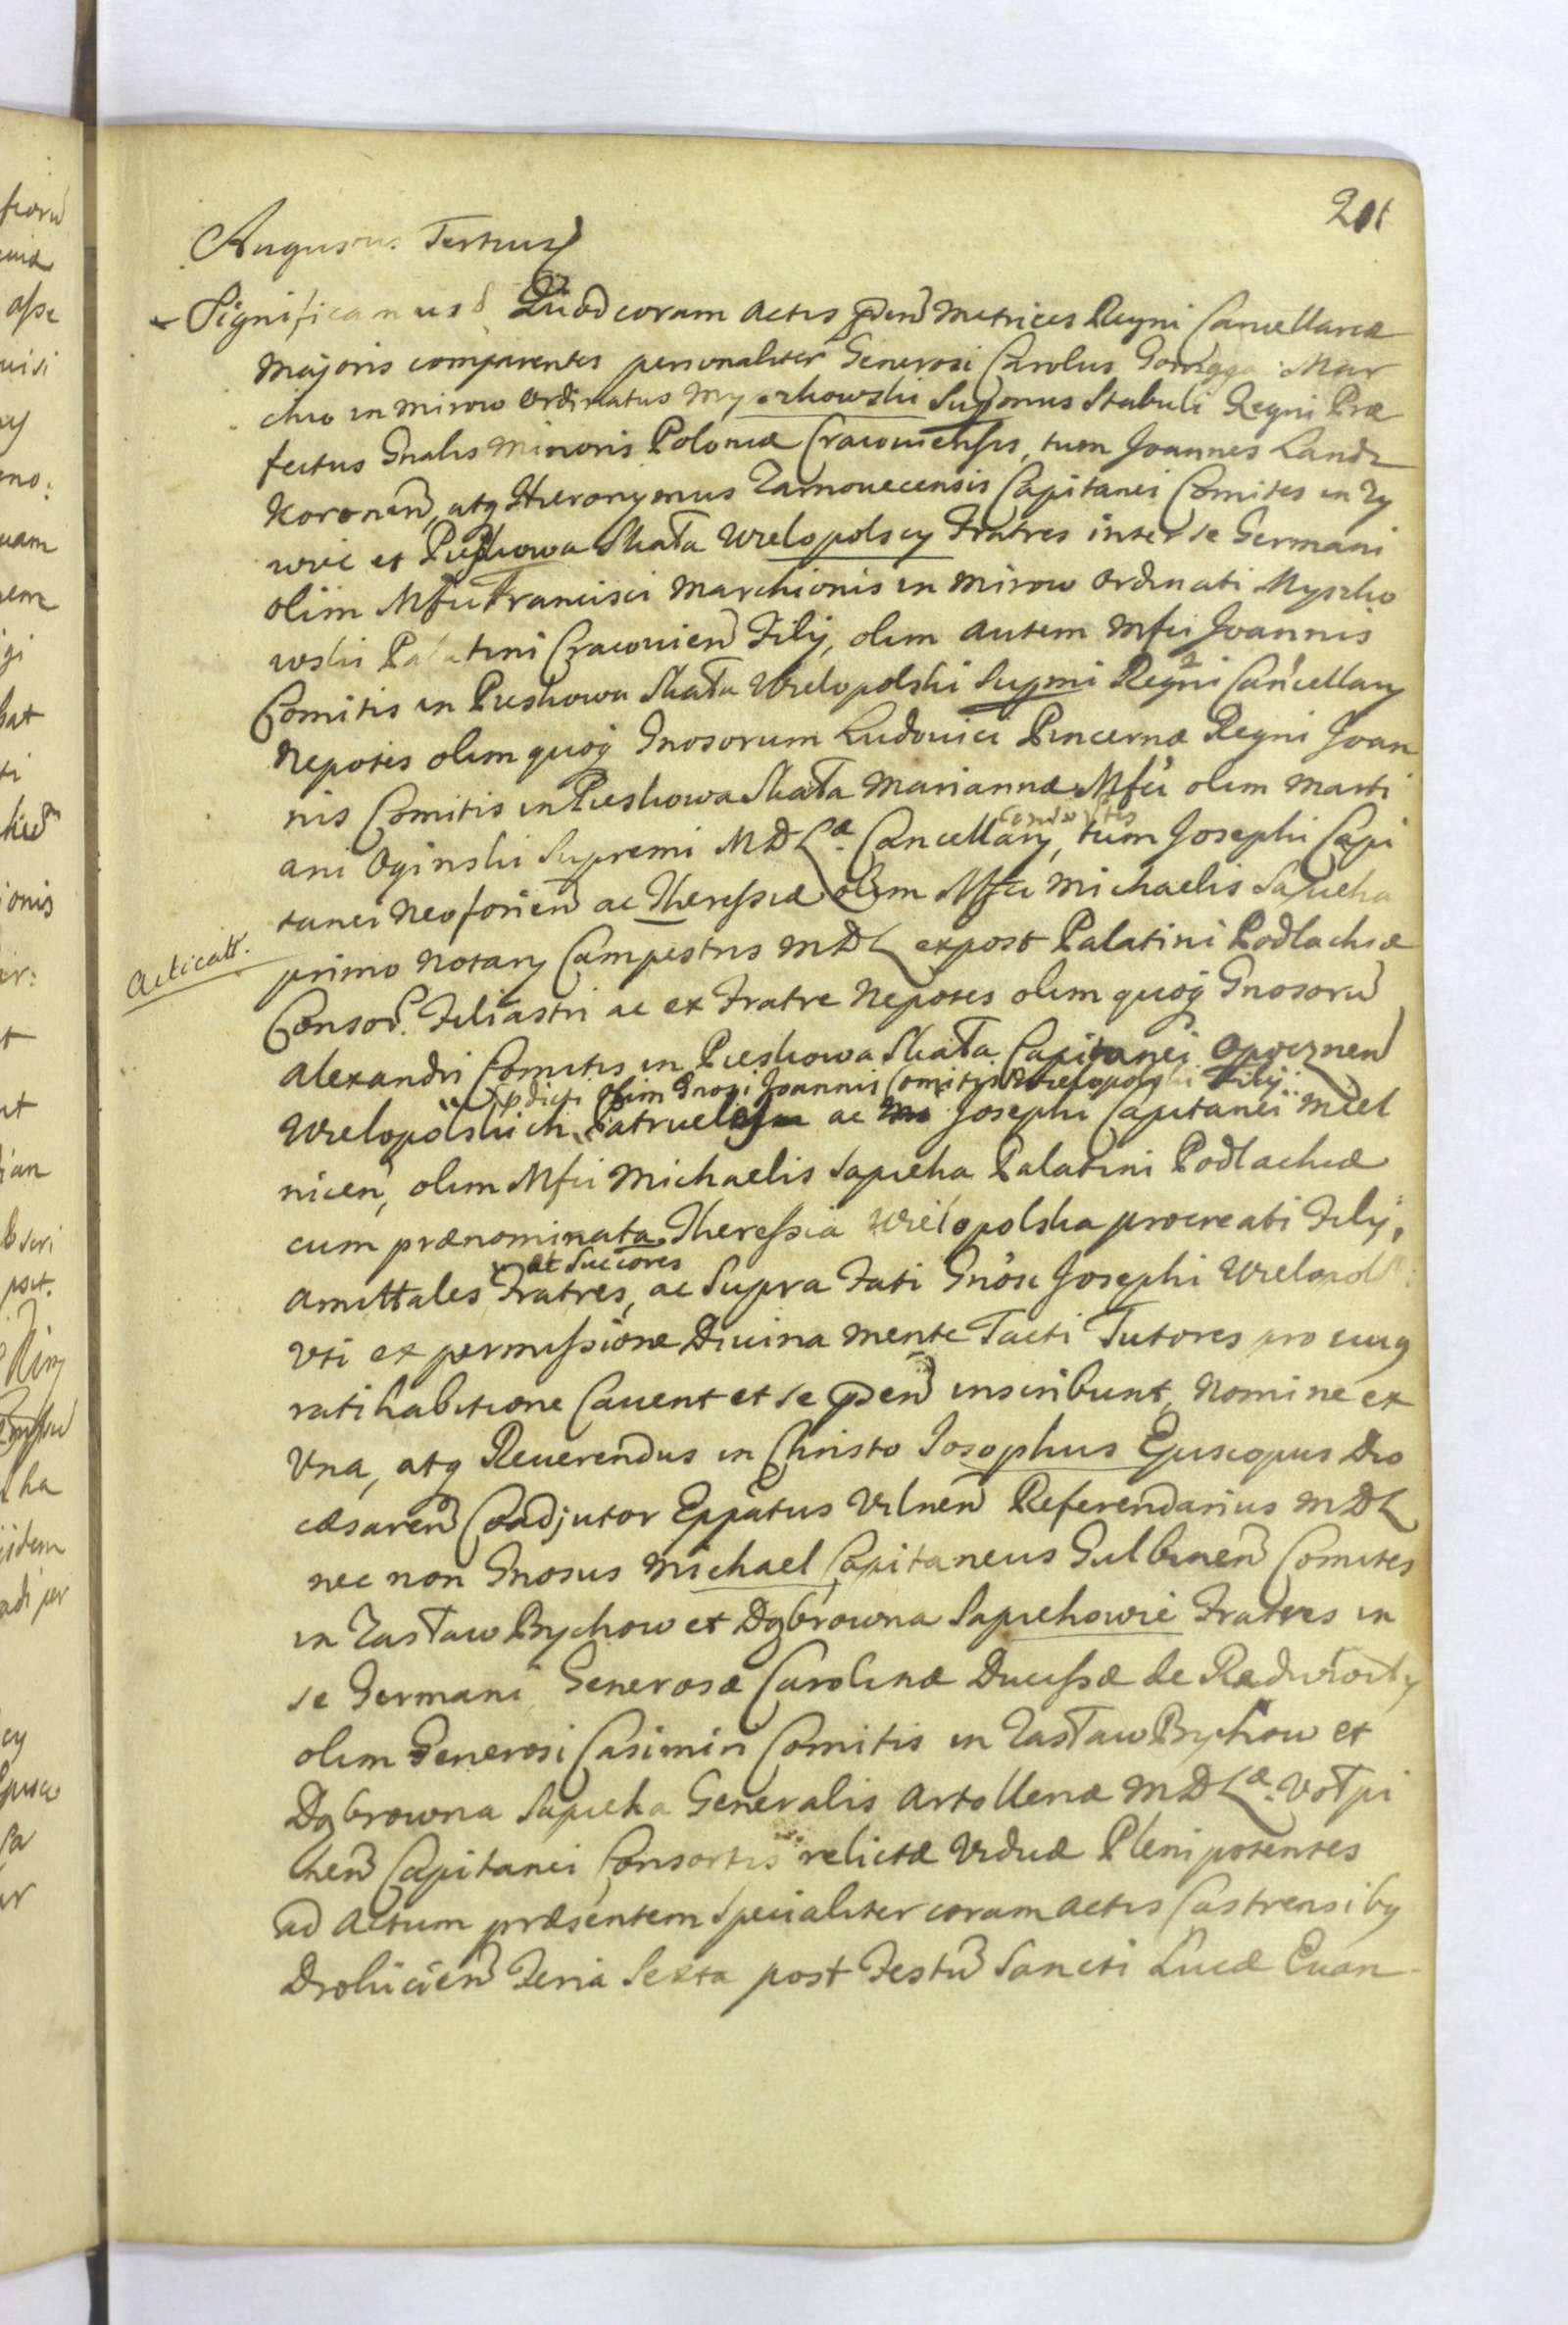 201
Augustus Tertius
Significamus & Quod coram Actis pñtibũ Metrices Regni Cancellariæ
Majoris comparentes personaliter Generosi Carolus Gonzaga Mar
chio in Mirow Ordinatus Myszkowski Supmus Stabuli Regni Præ
fectus Gnalis Minoris Poloniæ Cracoviensis, tum Joannes Landz
Koronen̄, atq Hieronymus Zarnovecensis Capitanei Comites in Zy
wiec et Pieskowa Skała Wielopolscy Fratres inter se Germani
olim Mfci Francisci Marchionis in Mirow Ordinati Myszko
wski Palatini Cracovien̄ Filij, olim autem Mfci Joannis
Comitis in Pieskowa Skała Wielopolski Supmi Regni Cancellarij
Nepotes olim quoq Gnosorum Ludovici Pincernæ Regni Joan
nis Comitis in Pieskowa Skała Mariannæ Mfci olim Marti
ani Oginski Supremi MDLæ Cancellarij, Consortis tum Josephi Capi
tanei Neoforien̄ ac Theressiæ olim Mfci Michaelis Sapieha
Acticatt.
primo Notarij Campestris MDL expost Palatini Podlachiæ
Consor. Filiastri ac ex Fratre Nepotes olim quoq Gnosorũ
Alexandri Comitis in Pieskowa Skała Capitanei Opocznen̄
pdicti olim Gnosi Joannis Comitis Wielopolski Filij
Wielopolskich Patrueles ac Josephi Capitanei Miel
nicen̄, olim Mfci Michaelis Sapieha Palatini Podlachiæ
cum prænominata Theressia Wielopolska procreati Filij,
et Succores
Amittales Fratres, ac Supra Fati Gnosi Josephi Wielopol
Uti ex permissione Divina Mente Tacti Tutores pro cuiq
ratihabitione Cavent et se pñtibũ inscribunt, Nomine ex
Una, atq Reverendus in Christo Josophus Episcopus Dio
cæsaren̄ Coadjutor Eppatus Vilnen̄ Referendarius MDL
nec non Gnosus Michael Capitaneus Gulbinen̄ Comites
in Zasław Bychow et Dąbrowna Sapiehowie Fratres in
se Germani Generosæ Carolinæ Ducissæ de Radwiłły
olim Generosi Casimiri Comitis in Zasław Bychow et
Dąbrowna Sapieha Generalis Artolleriæ MDLæ Wołpi
nen̄ Capitanei Consortis relictæ Viduæ Plenipotentes
ad Actum præsentem Specialiter coram Actis Castrensibq
Drohicien̄ Feria Sexta post Festũ Sancti Lucæ Evan